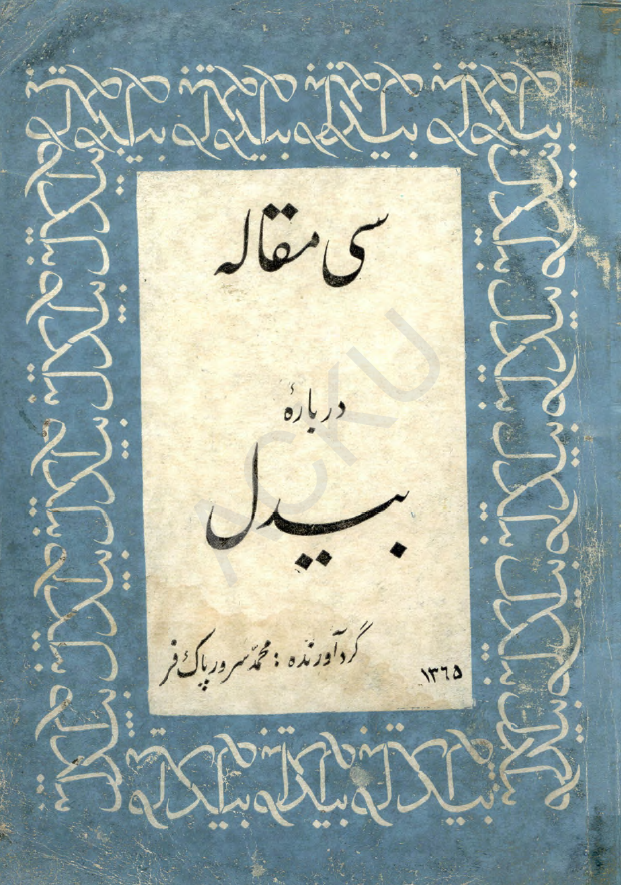 سی مقاله
دربارهٔ
بیدل
گردآورنده : محمّد سرور پاک فر
۱۳۶۵
ACKU